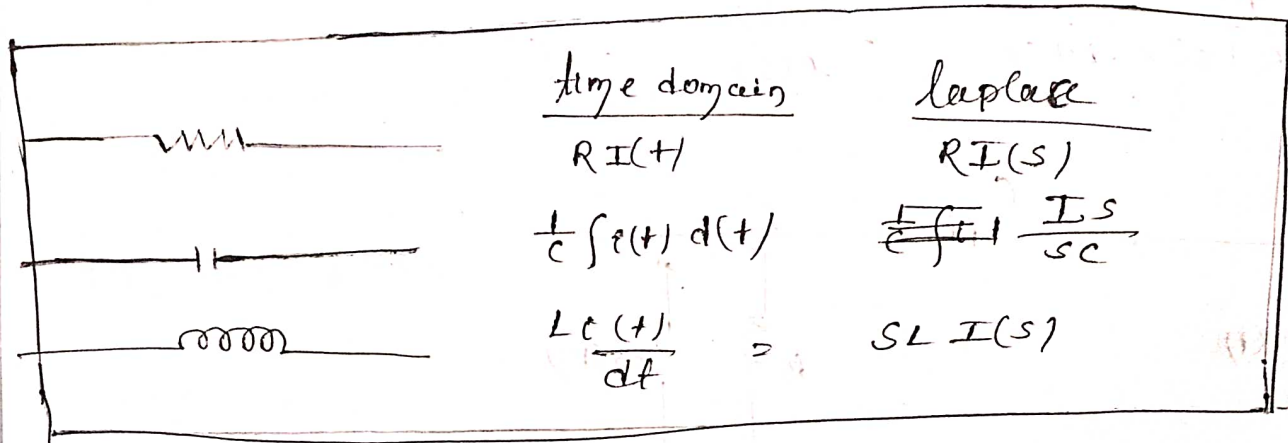 time domain laplace
R I(t) R I(s)
1/c ∫ i(t) d(t) I s / sc
L i(t) / dt = SL I(s)